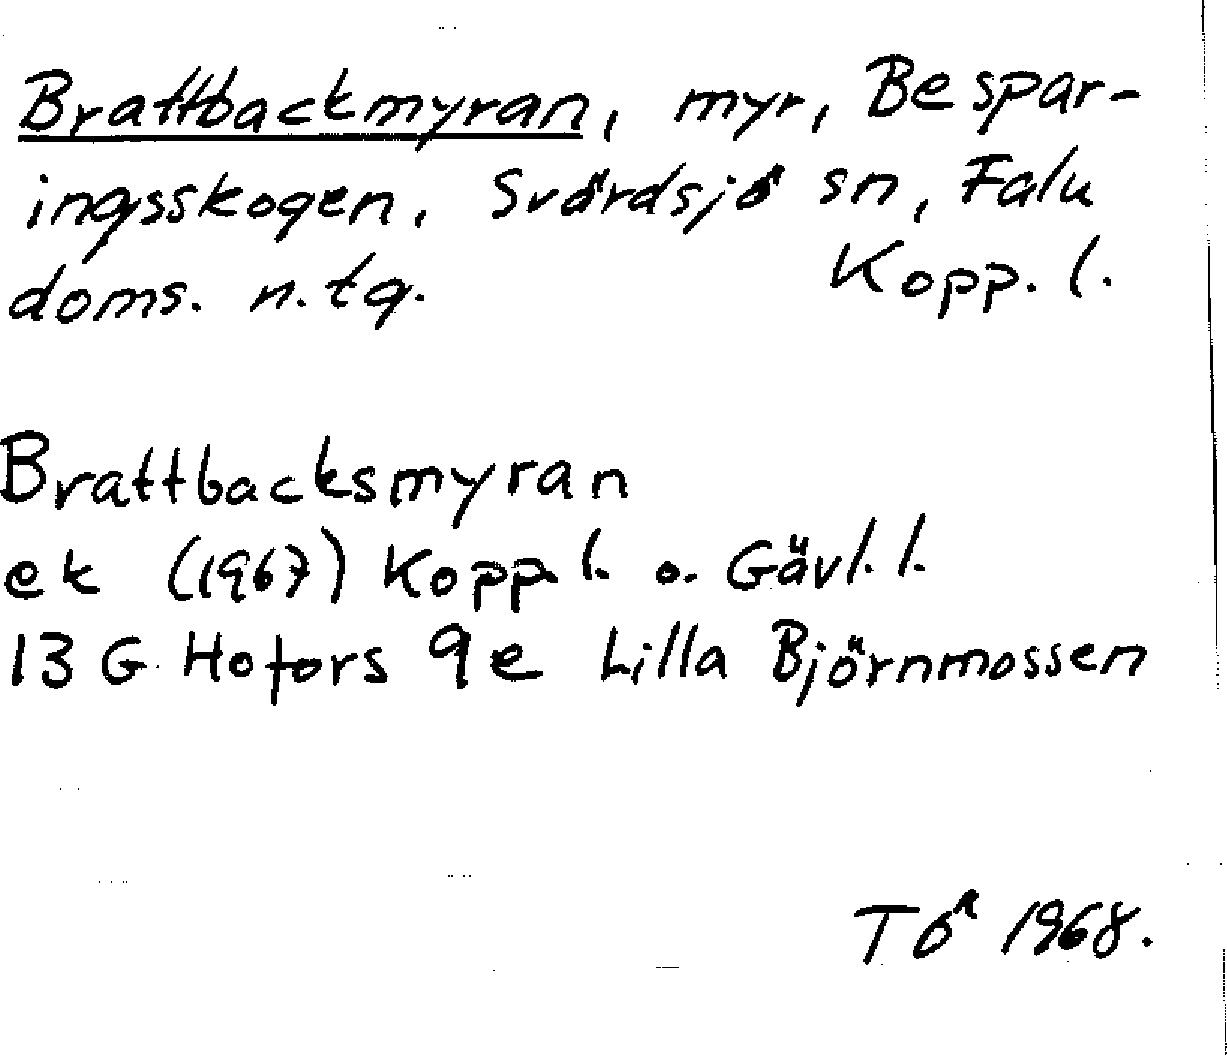 Brattbackmyran, myr, Bespar-
ingsskogen, Svärdsjö sn, Falu
doms. n. tg. Kopp. l.
Brattbacksmyran
ek (1967) Kopp. l. o. Gävl. l.
13 G Hofors 9e Lilla Björnmossen
TÖ 1968.